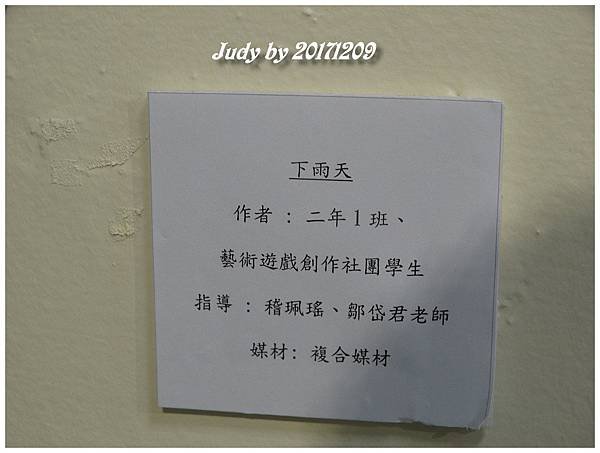 Judy by 20171209
下雨天
作者 : 二年1班、
藝術遊戲創作社團學生
指導 : 稽珮瑤、鄒岱君老師
媒材: 複合媒材